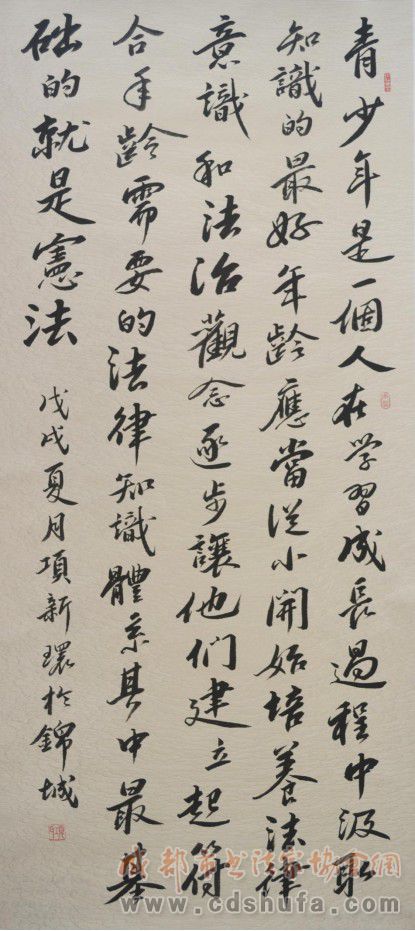 青少年是一個人在学習成長過程中汲取
知識的最好年齡應當從小開始培養法律
意識和法治觀念逐步讓他们建立起符
合年齡需要的法律知識體系其中最基
础的就是憲法
戊戌夏月項新環於錦城
成都市书法家协會網
www.cdshufa.com